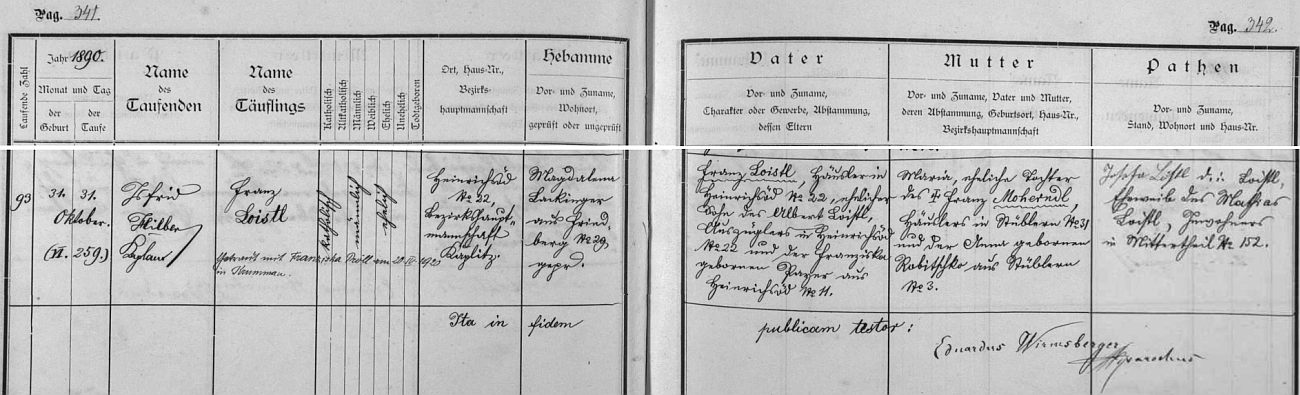 Pag. 341.
Pag. 342.
Laufende Zahl
Jahr 1890.
Monat und Tag
der Geburt
der Taufe
Name
des
Taufenden
Name
des
Täuflings
Katholisch
Altkatholisch
Männlich
Weiblich
Ehelich
Unehelich
Todtgeboren
Ort, Haus-Nr.,
Bezirks-
hauptmannschaft
Hebamme
Vor- und Zuname,
Wohnort,
geprüft oder ungeprüft
Vater
Vor- und Zuname,
Charakter oder Gewerbe, Abstammung,
dessen Eltern
Mutter
Vor- und Zuname, Vater und Mutter,
deren Abstammung, Geburtsort, Haus-Nr.,
Bezirkshauptmannschaft
Pathen
Vor- und Zuname,
Stand, Wohnort und Haus-Nr.
93
31. 31.
Oktober.
(VI. 259.)
Isfrid
Hilber
Kaplan
Franz
Loistl
Getraut mit Franziska
in
katholisch
männlich
ehelich
Heinrichsöd
No 22,
Bezirkshaupt-
mannschaft
Kaplitz.
Magdalena
Lackinger
aus Fried-
berg No 29,
gepr.
Franz Loistl, Häusler in
Heinrichsöd No 22, ehelicher
Sohn des Albert Loistl,
Auszüglers in Heinrichsöd
No 22 und der Franziska
gebornen Payer aus
Heinrichsöd No 11.
Maria, eheliche Tochter
des Franz Moherndl,
Häuslers in Stüblern No 31
und der Anna gebornen
Robitschko aus Stüblern
No 3.
Josefa Loistl d. i. Loistl,
Eheweib des Mathias
Loistl, Inwohners
in Mitterertheil No 152.
Ita in fidem
publicam testor:
Eduardus Wirmsberger
parochus